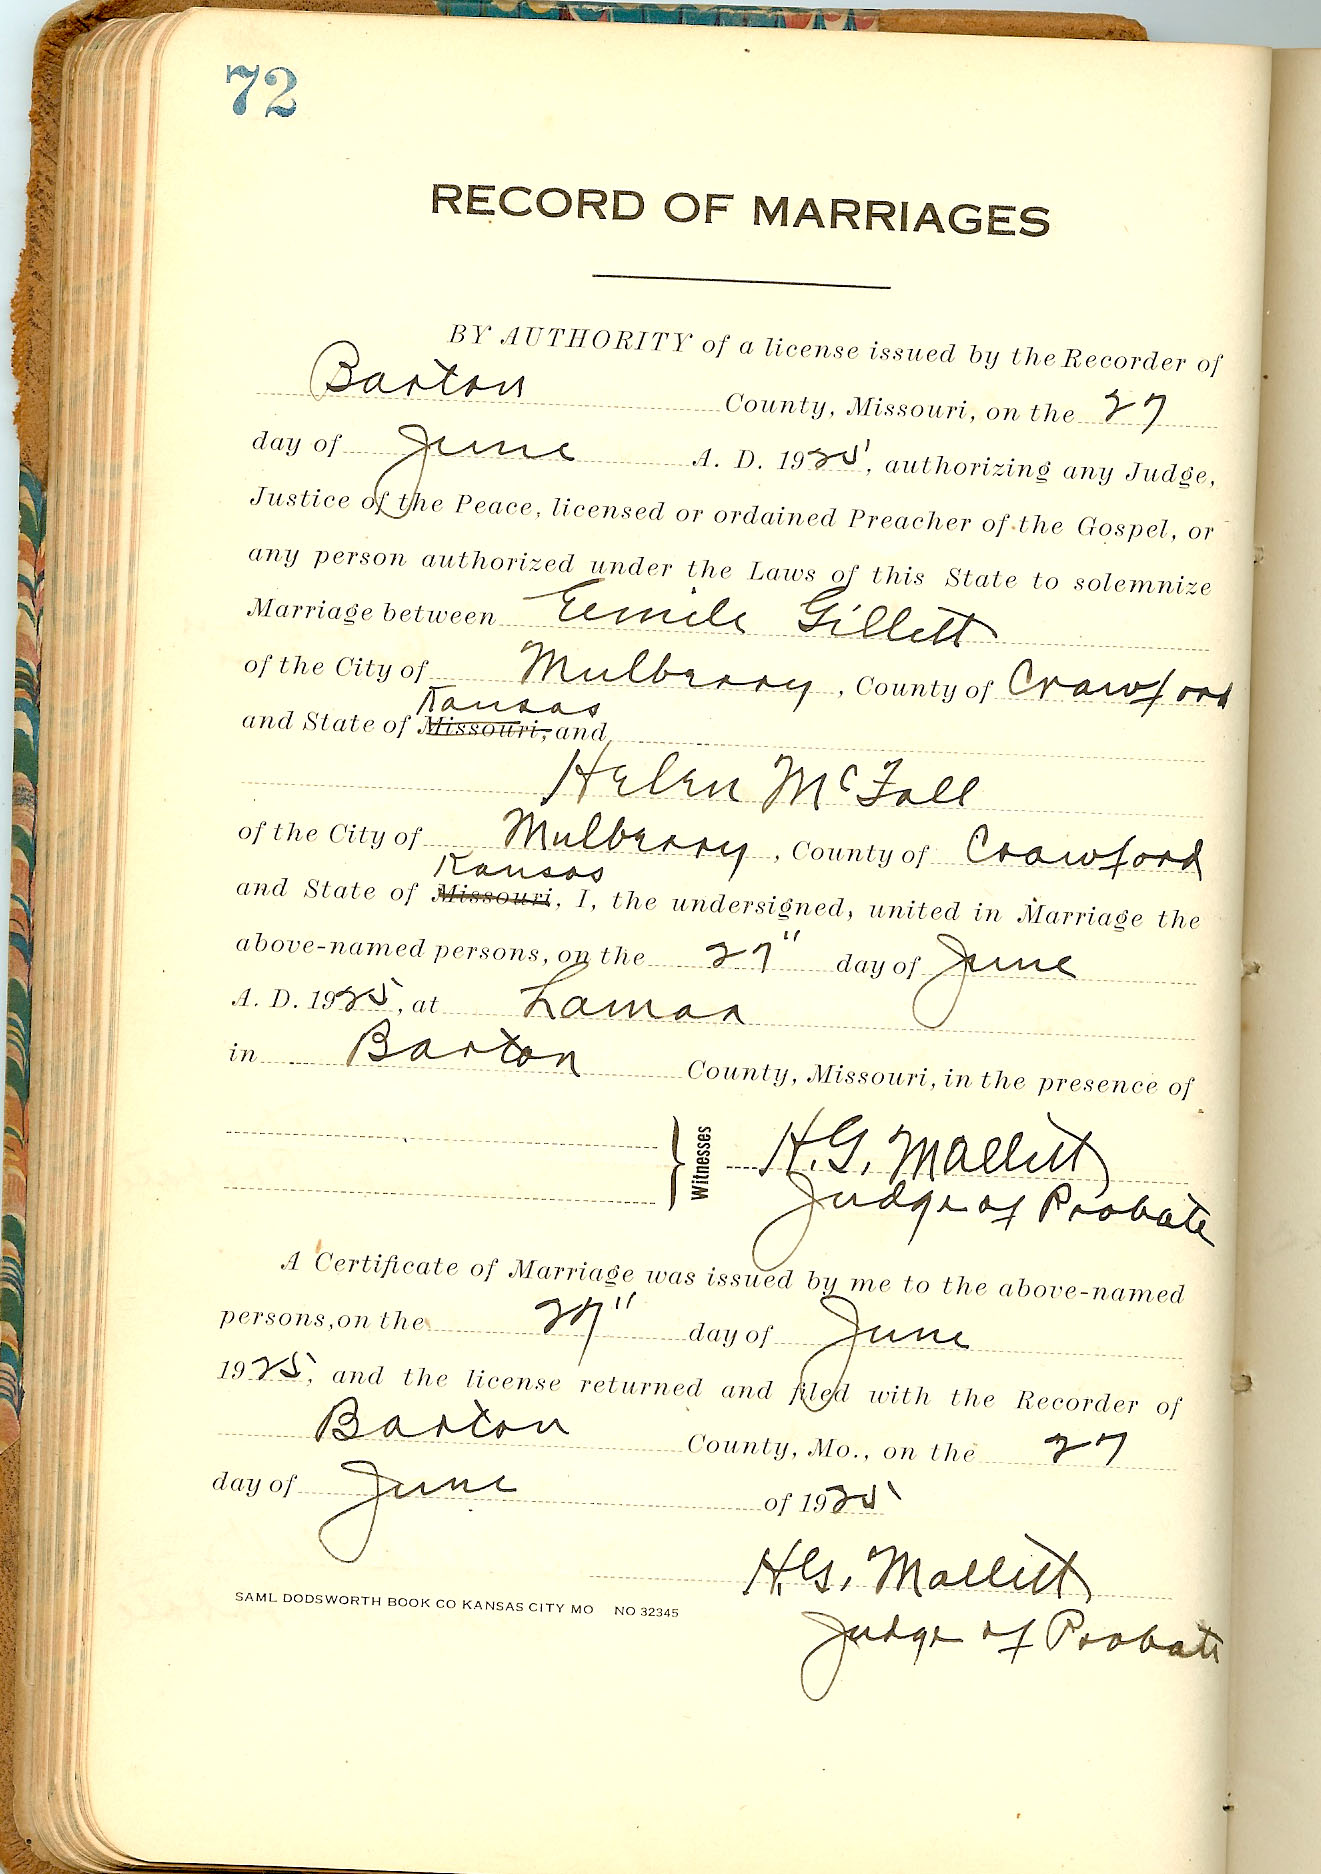 72
RECORD OF MARRIAGES
BY AUTHORITY of a license issued by the Recorder of
Barton County, Missouri, on the 27
day of June A. D. 1925, authorizing any Judge,
Justice of the Peace, licensed or ordained Preacher of the Gospel, or
any person authorized under the Laws of this State to solemnize
Marriage between Eemile Gillett
of the City of Mulberry, County of Crawford
Kansas
and State of Missouri, and
Helen McFall
of the City of Mulberry, County of Crawford
Kansas
and State of Missouri, I, the undersigned, united in Marriage the
above-named persons, on the 27" day of June
A. D. 1925, at Lamar
in Barton County, Missouri, in the presence of
Witnesses H. G. Mallett
Judge of Probate
A Certificate of Marriage was issued by me to the above-named
persons, on the 27" day of June
1925, and the license returned and filed with the Recorder of
Barton County, Mo., on the 27
day of June of 1925
H. G. Mallett
Judge of Probate
SAML DODSWORTH BOOK CO KANSAS CITY MO NO 32345